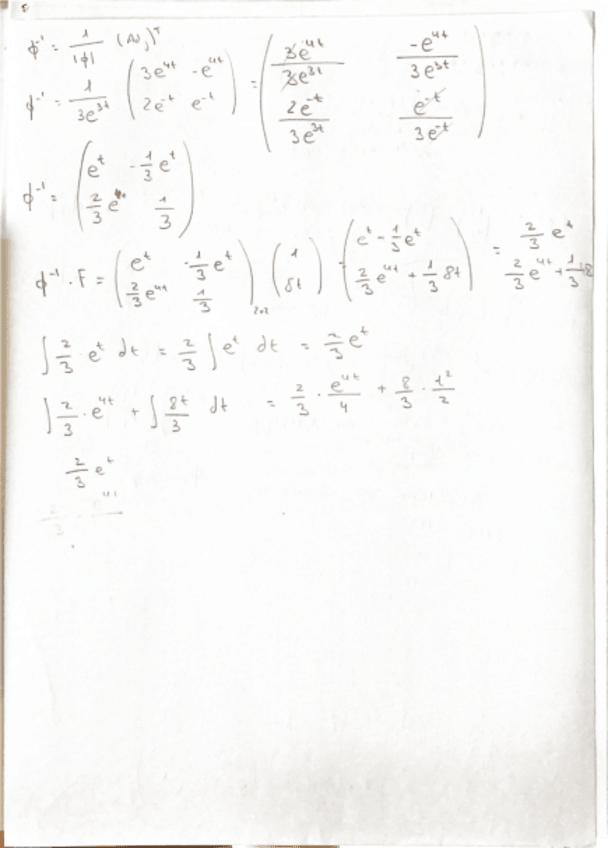 ϕ⁻¹ = 1/|ϕ| (Aij)ᵀ
ϕ⁻¹ = 1/(3e^{3t}) ( 3e^{4t} -e^{4t} ; 2e^{-t} e^{-t} ) = ( 3e^{4t}/3e^{3t} -e^{4t}/3e^{3t} ; 2e^{-t}/3e^{3t} e^{-t}/3e^{-t} )
ϕ⁻¹ = ( e^t -1/3 e^t ; 2/3 e 1/3 )
ϕ⁻¹ · F = ( e^t -1/3 e^t ; 2/3 e^{4t} 1/3 )₂ₓ₂ ( 1 ; 8t ) = ( e^t - 1/3 e^t ; 2/3 e^{4t} + 1/3 8t ) = 2/3 e^t ; 2/3 e^{4t} + 1/3 8
∫ 2/3 · e^t dt = 2/3 ∫ e^t dt = 2/3 e^t
∫ 2/3 · e^{4t} + ∫ 8t/3 dt = 2/3 · e^{4t}/4 + 8/3 · t²/2
2/3 e^t